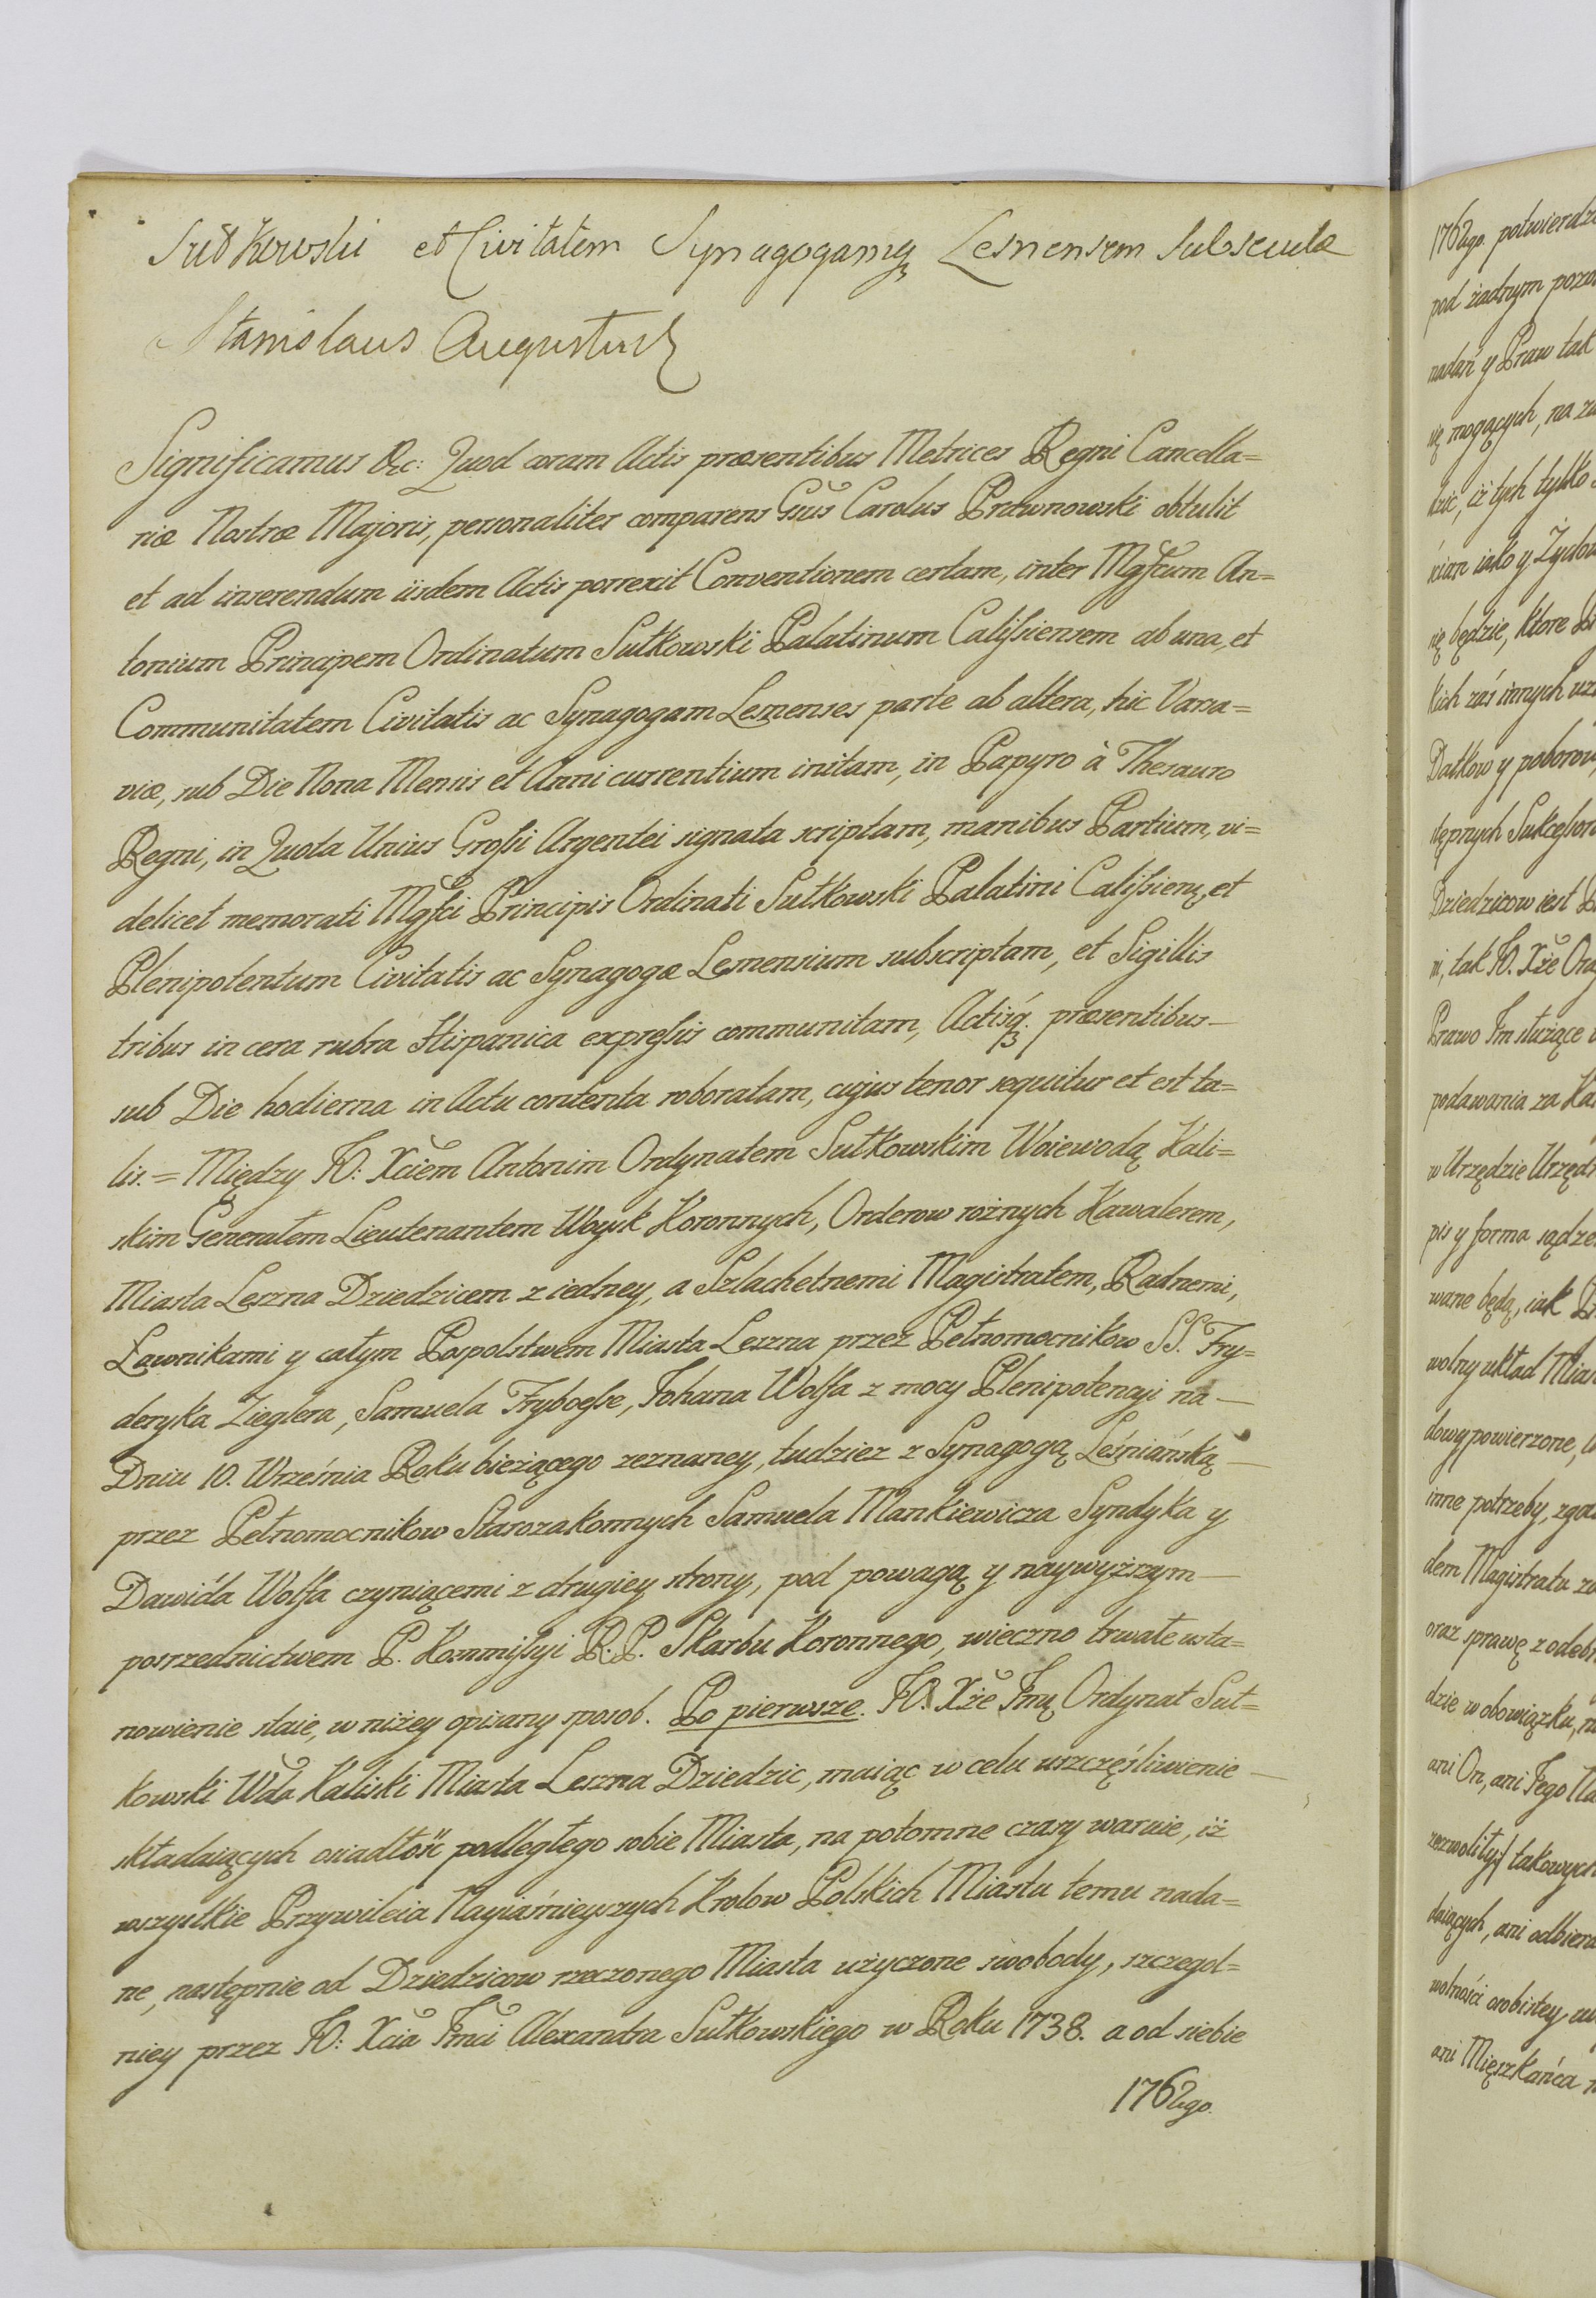 Sułkowski et Civitatem Synagogamq Lesnensem subsecuta
Stanislaus Augustus
Significamus &c: Quod coram Actis præsentibus Metrices Regni Cancella=
riæ Nostræ Majoris, personaliter comparens Gnus Carolus obtulit
et ad inserendum iisdem Actis porrexit Conventionem certam, inter Mgfcum An=
tonium Principem Ordinatum Sułkowski Palatinum Calissiensem ab una, et
Communitatem Civitatis ac Synagogam Lesnenses parte ab altera, hic Varsa=
viæ, sub Die Nona Mensis et Anni currentium initam, in Papyro à Thesauro
Regni, in Quota Unius Grossi Argentei signata scriptam, manibus Partium, vi=
delicet memorati Mgfci Principis Ordinati Sułkowski Palatini Calissien, et
Plenipotentum Civitatis ac Synagogæ Lesnensium subscriptam, et Sigillis
tribus in cera rubra Hispanica expressis communitam, Actisq. præsentibus—
sub Die hodierna in Actu contenta roboratam, cujus tenor sequitur et est ta=
lis. = Między JO: Xciem Antonim Ordynatem Sułkowskim Woiewodą Kali=
skim Generałem Lieutenantem Woysk Koronnych, Orderow rożnych Kawalerem,
Miasta Leszna Dziedzicem z iedney, a Szlachetnemi Magistratem, Radnemi,
Ławnikami y całym Pospolstwem Miasta Leszna przez Pełnomocnikow SS. Fry=
deryka Zieglera, Samuela Fryboesse, Johana Wolffa z mocy Plenipotencyi na—
Dniu 10. Września Roku bieżącego zeznaney, tudziez z Synagogą Leśniańską—
przez Pełnomocnikow Starozakonnych Samuela Mankiewicza Syndyka y
Dawida Wolffa czyniącemi z drugiey strony, pod powagą y naywyższym—
posrzednictwem P. Kommissyi R.P. Skarbu Koronnego, wieczno trwałe usta=
nowienie staie, w niżey opisany sposob. Po pierwsze. JO. Xże Jmę Ordynat Suł=
kowski Wda Kaliski Miasta Leszna Dziedzic, maiąc w celu uszczęśliwienie—
składaiących osiadłość podległego sobie Miasta, na potomne czasy waruie, iż
wszystkie Przywileia Nayiaśnieyszych Krolow Polskich Miastu temu nada=
ne, następnie od Dziedzicow rzeczonego Miasta użyczone swobody, szczegol=
niey przez JO: Xcia Jmci Alexandra Sułkowskiego w Roku 1738. a od siebie
1762go.
1762go. potwierdz
pod żadnym pozo
nadań y Praw tak
się mogących, na
iż tych tylko
iako y Żydow
się będzie, ktore
kich zaś innych
Datkow y poborow
stępnych Sukcessor
Dziedzicow iest
ni, tak JO. Xże Ord
Prawo Jm służące
podawania za Ka
w Urzędzie Urzęd
pis y forma sądze
wane będą, iak
wolny układ Mias
dowy powierzone,
inne potrzeby, zgo
dem Magistratu
oraz sprawę z odeb
dzie w obowiązku,
ani On, ani Jego Na
takowych
daiących, ani odbiera
wolności osobistey,
ani Mięszkańca